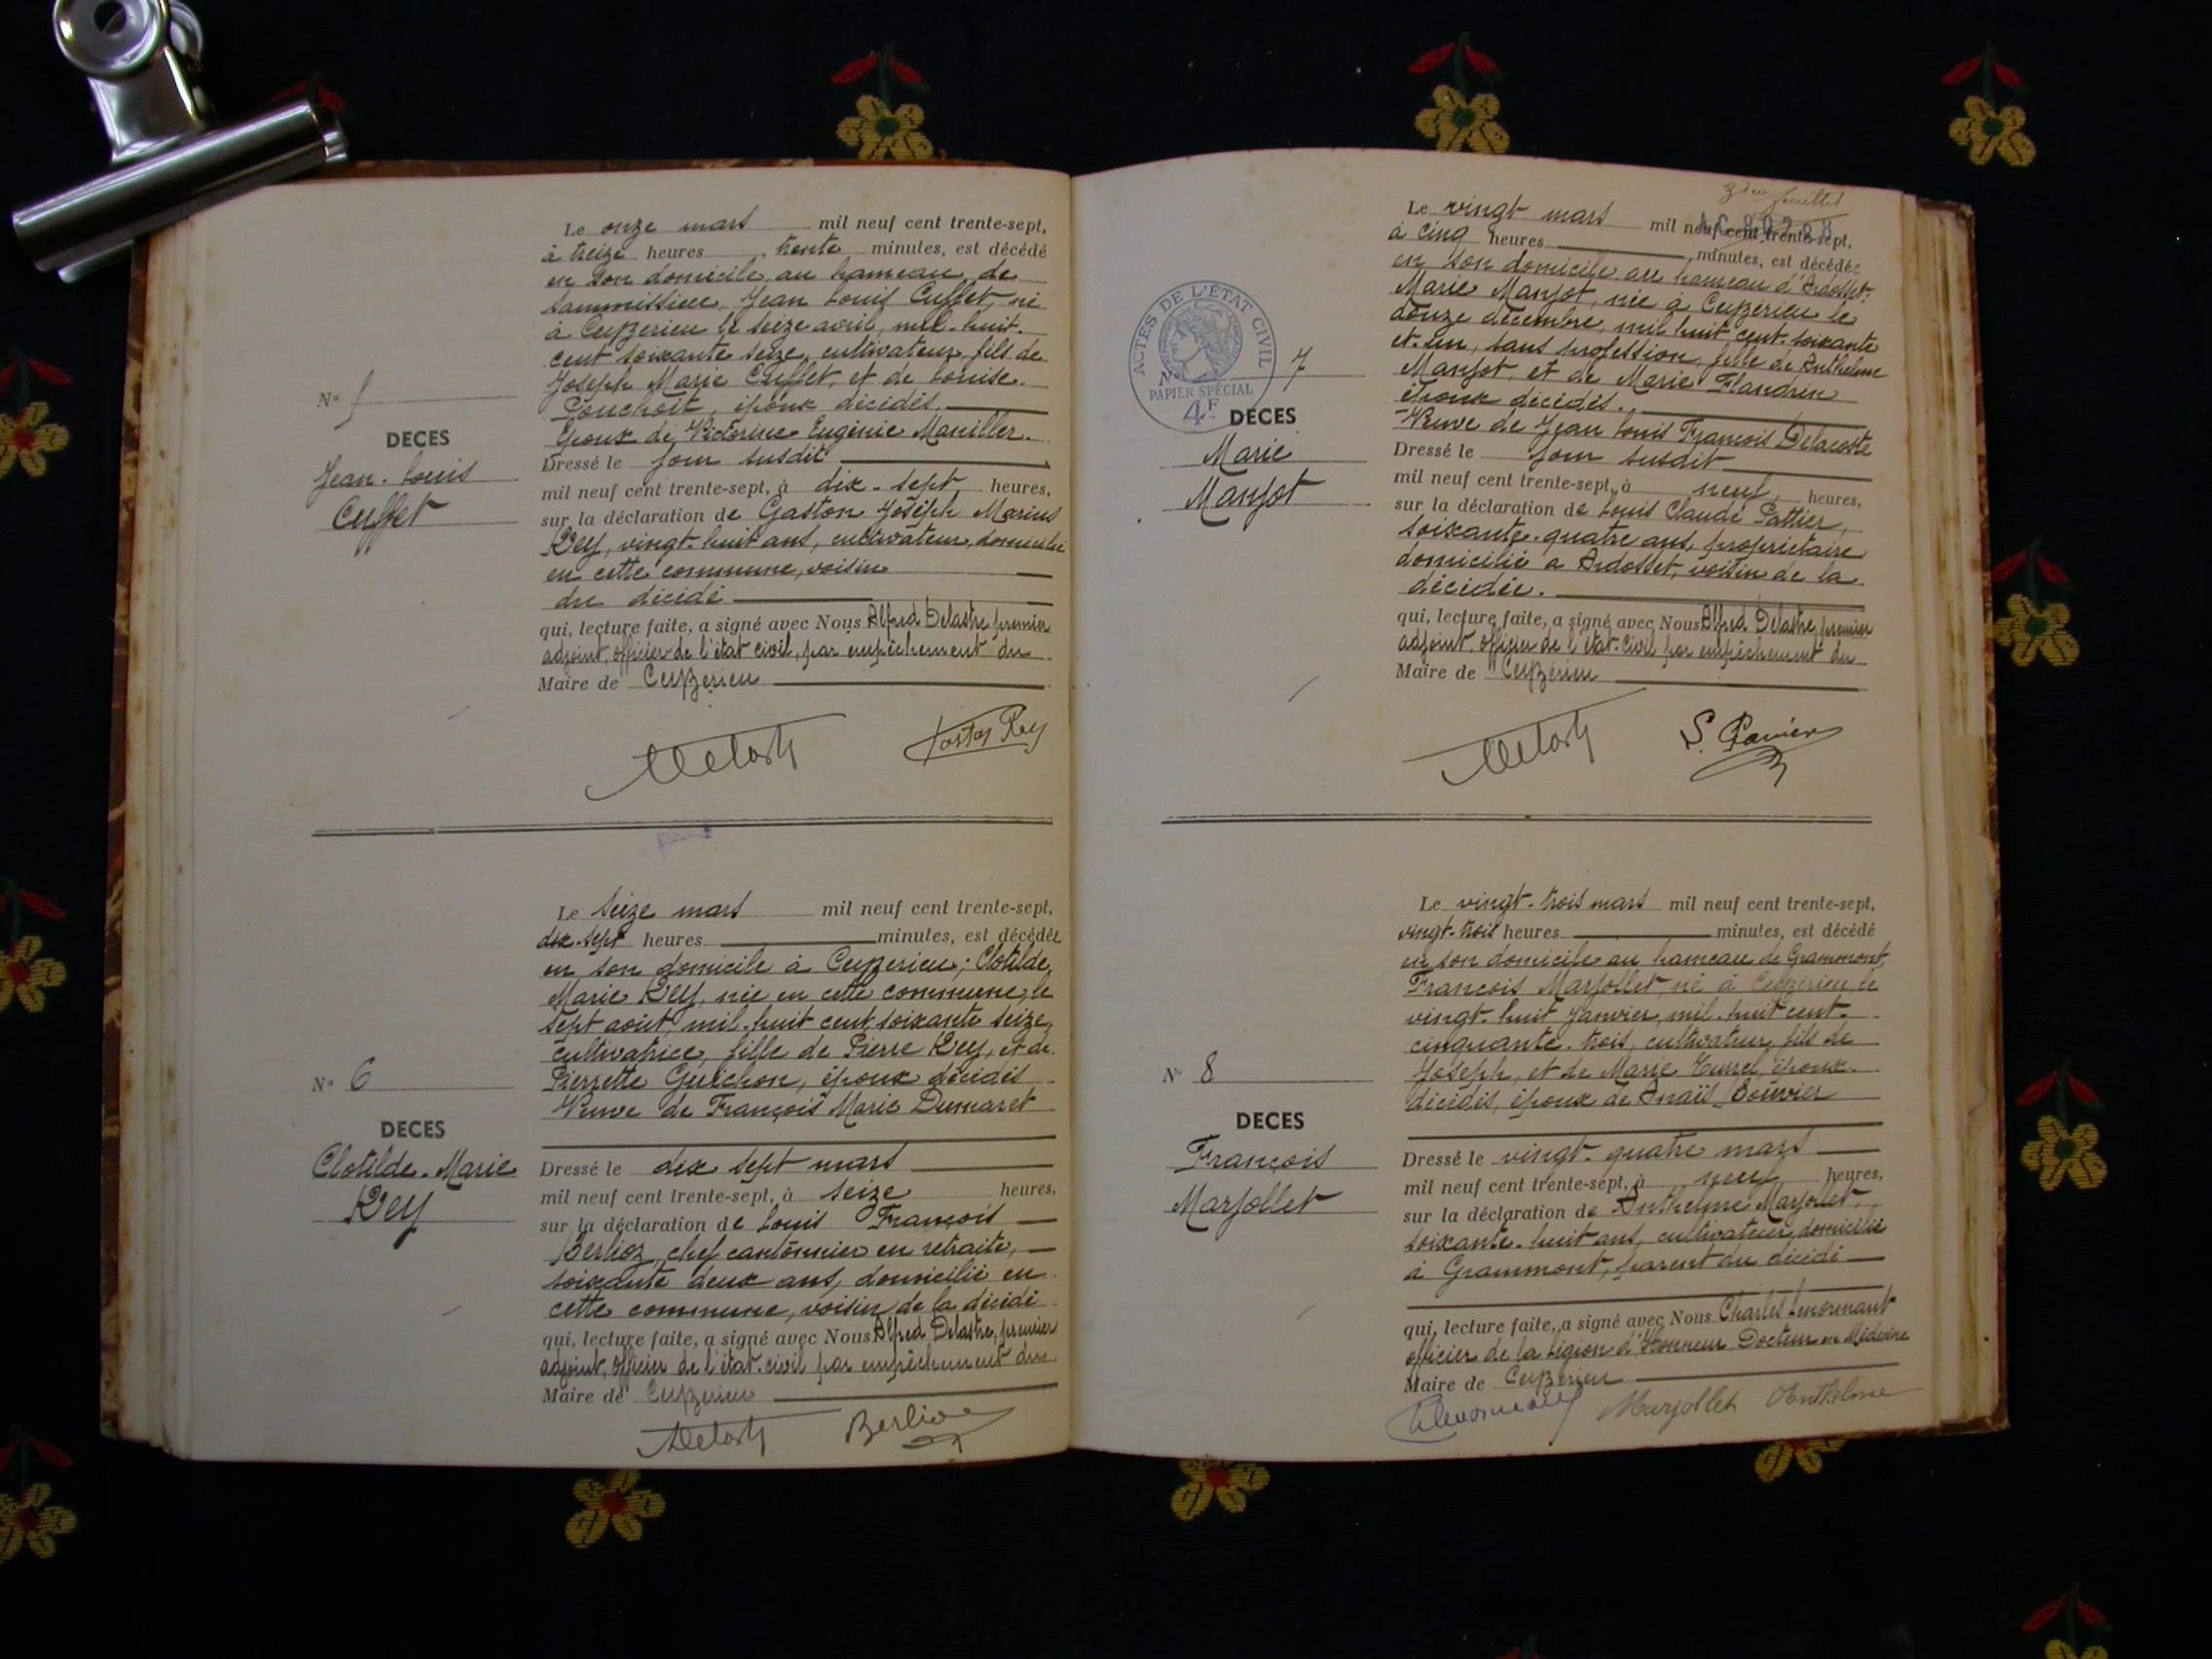 Le onze mars mil neuf cent trente-sept,
à treize heures trente minutes, est décédé
en son domicile au hameau de
Sammissieu, Jean Louis Cuffet, né
à Ceyzerieu le seize avril, mil-huit-
cent soixante seize, cultivateur, fils de
Joseph Marie Cuffet, et de Louise
époux décédés.
Epoux de Victorine Eugénie Maniller.
Nº 5
DECES
Jean-Louis
Cuffet
Dressé le jour susdit
mil neuf cent trente-sept, à dix-sept heures,
sur la déclaration de Gaston Joseph Marius
Rey, vingt-huit ans, cultivateur, domicilié
en cette commune, voisin
du décédé
qui, lecture faite, a signé avec Nous Alfred Delastre, premier
adjoint, officier de l'état civil, par empêchement du
Maire de Ceyzerieu
Gaston Rey
Le Seize mars mil neuf cent trente-sept,
dix-sept heures minutes, est décédée
en son domicile à Ceyzerieu; Clotilde,
Marie Rey, née en cette commune, le
sept août, mil-huit cent soixante seize,
cultivatrice, fille de Pierre Rey, et de
Pierrette Guichon, époux décédés
Veuve de François Marie Dumaret
Nº 6
DECES
Clotilde-Marie
Rey
Dressé le dix sept mars
mil neuf cent trente-sept, à seize heures,
sur la déclaration de Louis François
Berlioz, chef cantonnier en retraite,
soixante deux ans, domicilié en
cette commune, voisin de la décédé
qui, lecture faite, a signé avec Nous Alfred Delastre, premier
adjoint, officier de l'état-civil par empêchement du
Maire de Ceyzerieu
Berlioz
3ème feuillet
Le vingt mars mil neuf cent trente-sept,
à cinq heures minutes, est décédée
en son domicile au hameau d'Ardosset,
Marie Manjot, née à Ceyzérieu le
douze décembre, mil huit cent-soixante
et-un, sans profession, fille de Anthelme
Manjot, et de Marie Flandrin
époux décédés.
Veuve de Jean Louis François Delacoste
ACTES DE L'ÉTAT CIVIL
PAPIER SPÉCIAL
4F
Nº 7
DECES
Marie
Manjot
Dressé le jour susdit
mil neuf cent trente-sept, à neuf heures,
sur la déclaration de Louis Claude
soixante-quatre ans, propriétaire
domicilié a Ardosset, voisin de la
décédée.
qui, lecture faite, a signé avec Nous Alfred Delastre, premier
adjoint, officier de l'état-civil par empêchement du
Maire de Ceyzérieu
Le vingt-trois mars mil neuf cent trente-sept,
vingt-trois heures minutes, est décédé
en son domicile au hameau de Grammont,
François Marjollet, né à Ceyzérieu, le
vingt-huit Janvier, mil-huit cent-
cinquante-trois, cultivateur, fils de
Joseph, et de Marie époux
décédés, époux de Anaïs Bouvier
Nº 8
DECES
François
Marjollet
Dressé le vingt-quatre mars
mil neuf cent trente-sept, à neuf heures,
sur la déclaration de Anthelme Marjollet,
soixante-huit ans, cultivateur, domicilié
à Grammont, parent du décédé
qui, lecture faite, a signé avec Nous Charles Lenormant
officier de la Légion d'Honneur Docteur en Médecine
Maire de Ceyzérieu
Marjollet Anthelme